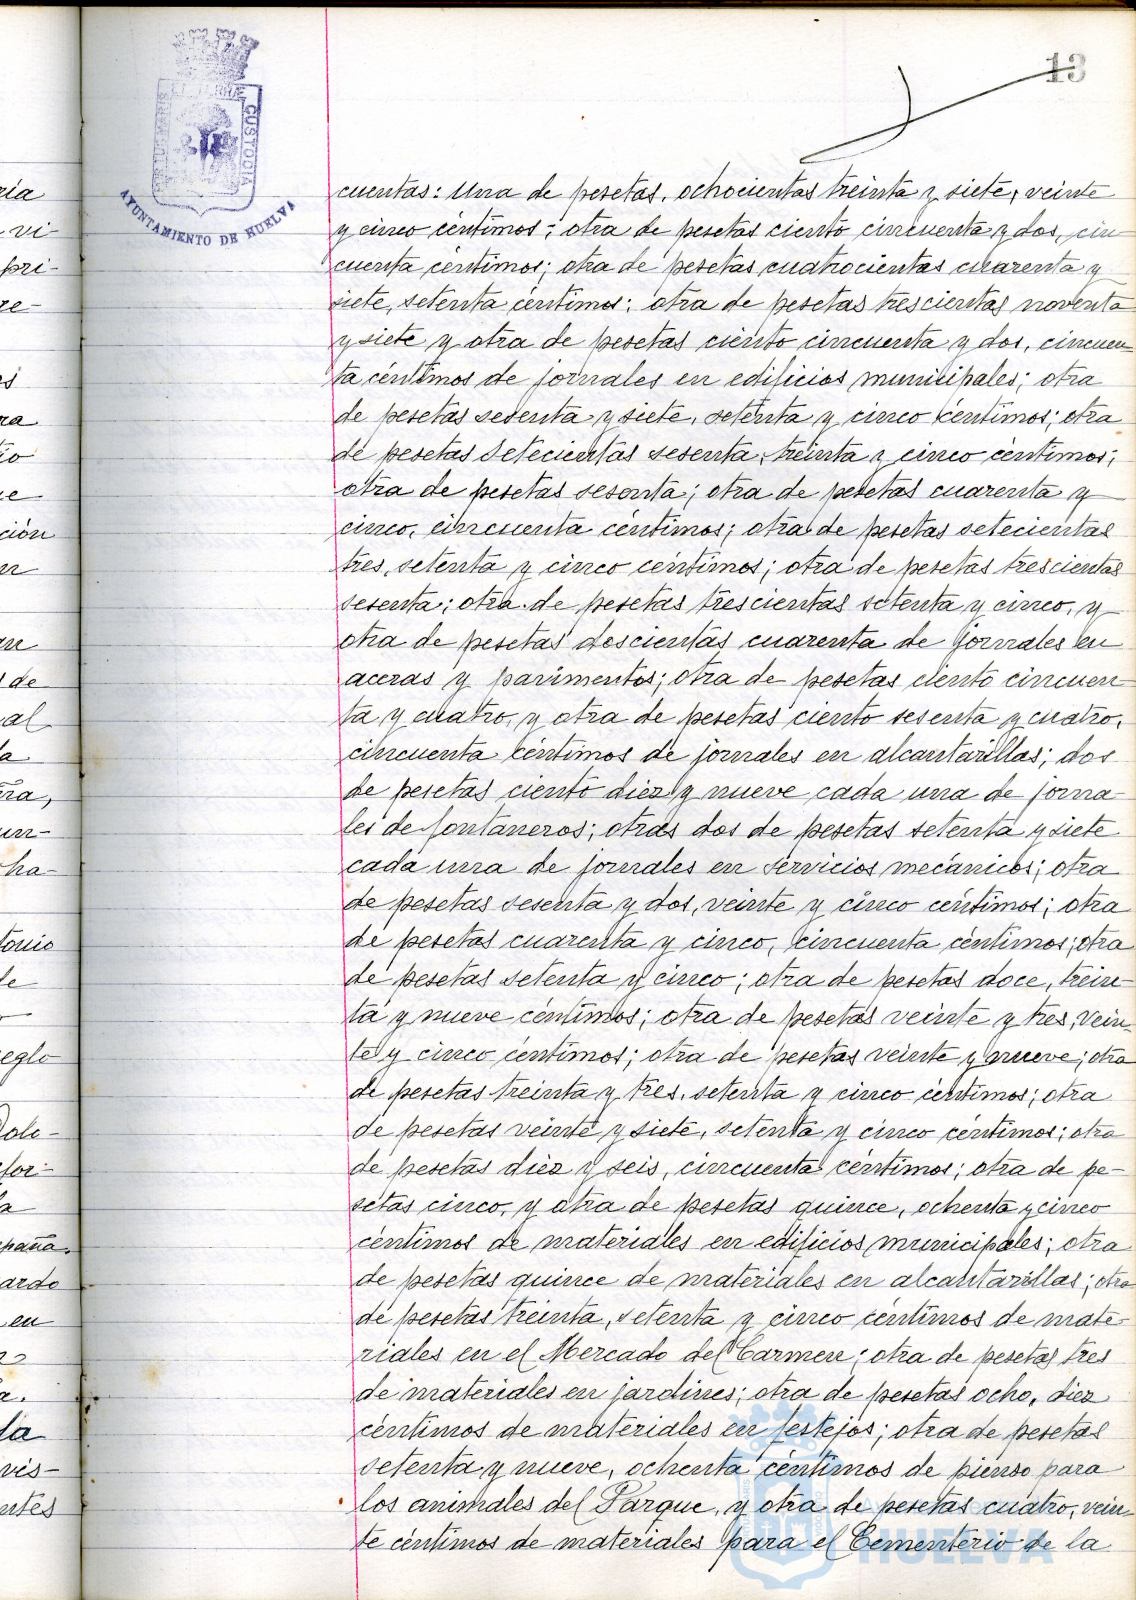 13
PORTUS MARIS
ET TERRAE
CUSTODIA
AYUNTAMIENTO DE HUELVA
cuentas: Una de pesetas, ochocientas treinta y siete, veinte
y cinco céntimos; otra de pesetas ciento cincuenta y dos, cin
cuenta céntimos; otra de pesetas cuatrocientas cuarenta y
siete, setenta céntimos; otra de pesetas trescientas noventa
y siete y otra de pesetas ciento cincuenta y dos, cincuen
ta céntimos de jornales en edificios municipales; otra
de pesetas sesenta y siete, setenta y cinco céntimos; otra
de pesetas setecientas sesenta, treinta y cinco céntimos;
otra de pesetas sesenta; otra de pesetas cuarenta y
cinco, cincuenta céntimos; otra de pesetas setecientas
tres, setenta y cinco céntimos; otra de pesetas trescientas
sesenta; otra de pesetas trescientas setenta y cinco, y
otra de pesetas doscientas cuarenta de jornales en
aceras y pavimentos; otra de pesetas ciento cincuen
ta y cuatro, y otra de pesetas ciento sesenta y cuatro,
cincuenta céntimos de jornales en alcantarillas; dos
de pesetas ciento diez y nueve cada una de jorna-
les de fontaneros; otras dos de pesetas setenta y siete
cada una de jornales en servicios mecánicos; otra
de pesetas sesenta y dos, veinte y cinco céntimos; otra
de pesetas cuarenta y cinco, cincuenta céntimos; otra
de pesetas setenta y cinco; otra de pesetas doce, trein-
ta y nueve céntimos; otra de pesetas veinte y tres, vein-
te y cinco céntimos; otra de pesetas veinte y nueve; otra
de pesetas treinta y tres, setenta y cinco céntimos; otra
de pesetas veinte y siete, setenta y cinco céntimos; otra
de pesetas diez y seis, cincuenta céntimos; otra de pe-
setas cinco, y otra de pesetas quince, ochenta y cinco
céntimos de materiales en edificios municipales; otra
de pesetas quince de materiales en alcantarillas; otra
de pesetas treinta, setenta y cinco céntimos de mate-
riales en el Mercado del Carmen; otra de pesetas tres
de materiales en jardines; otra de pesetas ocho, diez
céntimos de materiales en festejos; otra de pesetas
setenta y nueve, ochenta céntimos de pienso para
los animales del Parque, y otra de pesetas cuatro, vein-
te céntimos de materiales para el Cementerio de la
HUELVA